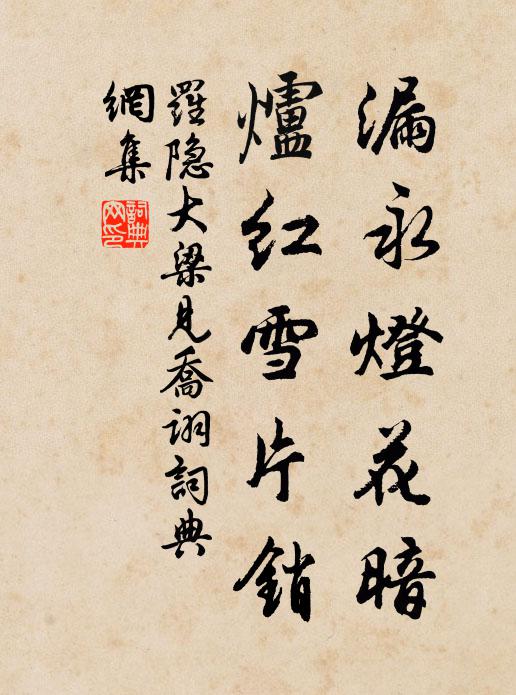 漏永燈花暗
爐红雪片銷
羅隐大梁見喬詡詞典
網集
詞典
网印